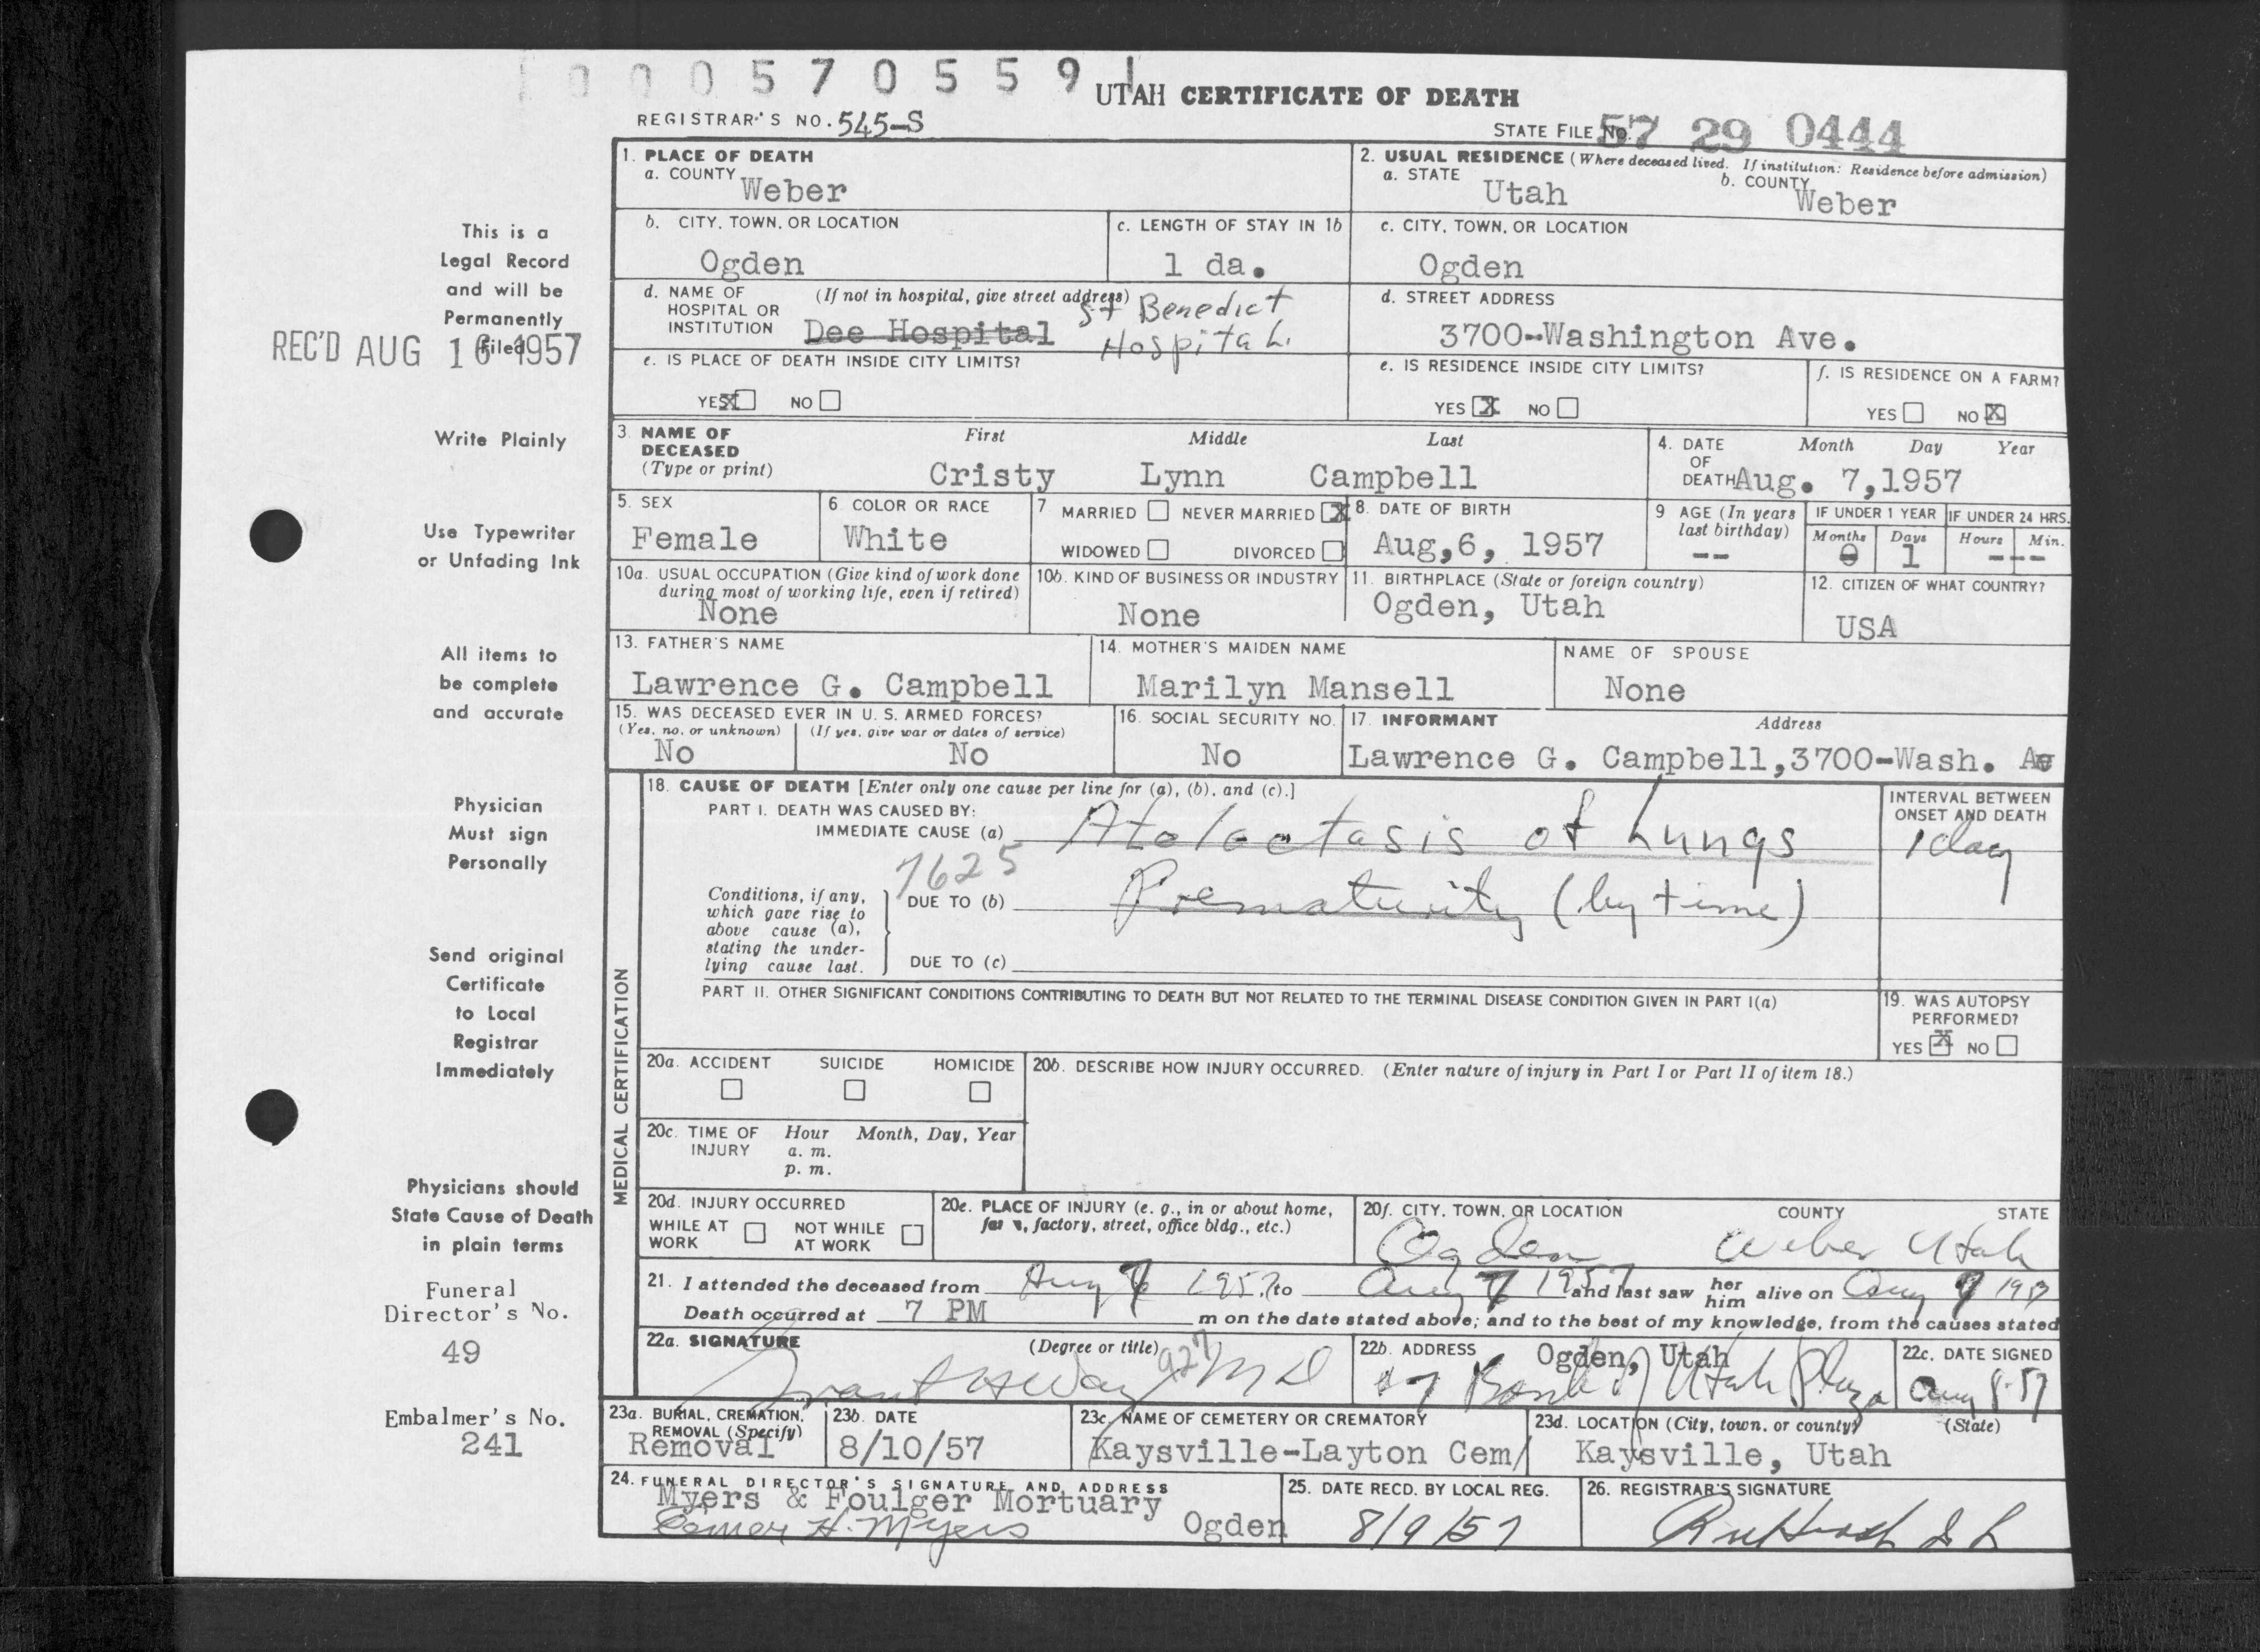 0 0 0 5 7 0 5 5 9
UTAH CERTIFICATE OF DEATH
REGISTRAR'S NO. 545-S
STATE FILE NO. 57 29 0444
1. PLACE OF DEATH
a. COUNTY Weber
2. USUAL RESIDENCE (Where deceased lived. If institution: Residence before admission)
a. STATE Utah b. COUNTY Weber
b. CITY, TOWN, OR LOCATION Ogden
c. LENGTH OF STAY IN 1b 1 da.
c. CITY, TOWN, OR LOCATION Ogden
d. NAME OF HOSPITAL OR INSTITUTION (If not in hospital, give street address) Dee Hospital St Benedict Hospital.
d. STREET ADDRESS 3700-Washington Ave.
e. IS PLACE OF DEATH INSIDE CITY LIMITS?
YES X NO
e. IS RESIDENCE INSIDE CITY LIMITS?
YES X NO
f. IS RESIDENCE ON A FARM?
YES NO X
3. NAME OF DECEASED (Type or print) First Middle Last
Cristy Lynn Campbell
4. DATE OF DEATH Month Day Year
Aug. 7,1957
5. SEX Female
6. COLOR OR RACE White
7 MARRIED NEVER MARRIED X
WIDOWED DIVORCED
8. DATE OF BIRTH Aug,6, 1957
9 AGE (In years last birthday) --
IF UNDER 1 YEAR Months 0 Days 1
IF UNDER 24 HRS. Hours Min. ---
10a. USUAL OCCUPATION (Give kind of work done during most of working life, even if retired) None
10b. KIND OF BUSINESS OR INDUSTRY None
11. BIRTHPLACE (State or foreign country) Ogden, Utah
12. CITIZEN OF WHAT COUNTRY? USA
13. FATHER'S NAME Lawrence G. Campbell
14. MOTHER'S MAIDEN NAME Marilyn Mansell
NAME OF SPOUSE None
15. WAS DECEASED EVER IN U. S. ARMED FORCES?
(Yes, no, or unknown) No (If yes, give war or dates of service) No
16. SOCIAL SECURITY NO. No
17. INFORMANT Address
Lawrence G. Campbell,3700-Wash. Av
18. CAUSE OF DEATH [Enter only one cause per line for (a), (b), and (c).]
PART I. DEATH WAS CAUSED BY:
IMMEDIATE CAUSE (a) Atelectasis of Lungs
7625
Conditions, if any, which gave rise to above cause (a), stating the underlying cause last.
DUE TO (b) Prematurity (by time)
DUE TO (c)
INTERVAL BETWEEN ONSET AND DEATH
1 day
PART II. OTHER SIGNIFICANT CONDITIONS CONTRIBUTING TO DEATH BUT NOT RELATED TO THE TERMINAL DISEASE CONDITION GIVEN IN PART I(a)
19. WAS AUTOPSY PERFORMED?
YES X NO
MEDICAL CERTIFICATION
20a. ACCIDENT SUICIDE HOMICIDE
20b. DESCRIBE HOW INJURY OCCURRED. (Enter nature of injury in Part I or Part II of item 18.)
20c. TIME OF INJURY Hour Month, Day, Year
a. m.
p. m.
20d. INJURY OCCURRED
WHILE AT WORK NOT WHILE AT WORK
20e. PLACE OF INJURY (e. g., in or about home, farm, factory, street, office bldg., etc.)
20f. CITY, TOWN, OR LOCATION COUNTY STATE
Ogden Weber Utah
21. I attended the deceased from Aug 1957, to Aug 7 1957 and last saw her him alive on Aug 7 1957
Death occurred at 7 PM m on the date stated above; and to the best of my knowledge, from the causes stated
22a. SIGNATURE (Degree or title) 927 MD
22b. ADDRESS Ogden, Utah
#7 Bank of Utah Plaza
22c. DATE SIGNED Aug 8-57
23a. BURIAL, CREMATION, REMOVAL (Specify) Removal
23b. DATE 8/10/57
23c. NAME OF CEMETERY OR CREMATORY Kaysville-Layton Cem/
23d. LOCATION (City, town, or county) (State) Kaysville, Utah
24. FUNERAL DIRECTOR'S SIGNATURE AND ADDRESS
Myers & Foulger Mortuary
H. Myers Ogden
25. DATE RECD. BY LOCAL REG. 8/9/57
26. REGISTRAR'S SIGNATURE
This is a
Legal Record
and will be
Permanently
Filed
REC'D AUG 16 1957
Write Plainly
Use Typewriter
or Unfading Ink
All items to
be complete
and accurate
Physician
Must sign
Personally
Send original
Certificate
to Local
Registrar
Immediately
Physicians should
State Cause of Death
in plain terms
Funeral
Director's No.
49
Embalmer's No.
241